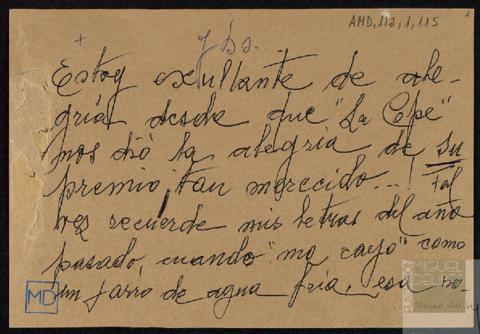 AMD, 112, 1, 115
1
+
Jhs.
Estoy exultante de ale-
gría, desde que "La Cope"
nos dió la alegría de su
premio ¡tan merecido...! Tal
vez recuerde mis letras del año
pasado, cuando "me cayó" como
un jarro de agua fría, esa no-
MD
MIGUEL
DELIBES